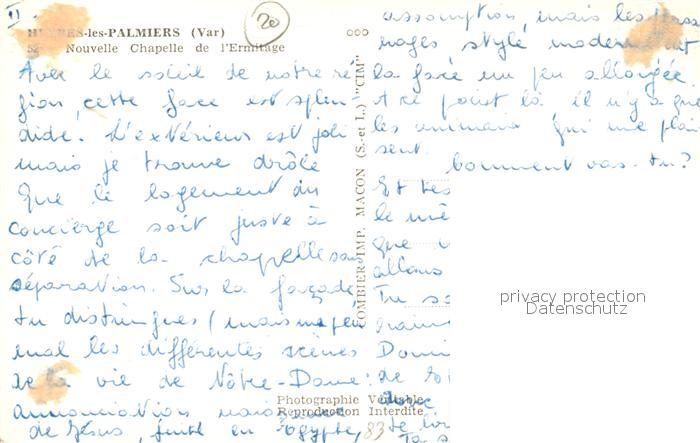 II
HYÈRES-les-PALMIERS (Var)
20
Nouvelle Chapelle de l'Ermitage
Avec le soleil de notre ré
gion, cette face est splen
dide. L'extérieur est joli
mais je trouve drôle
que le logement du
concierge soit juste à
côté de la chapelle sans
séparation. Sur la façade
tu distingues (mais un peu
mal les différentes scènes
de la vie de Nôtre-Dame:
annonciation, naissance
de Jésus, fuite en Egypte,
83
Photographie Véritable
Reproduction Interdite
COMBIER IMP. MACON (S.-et-L.) "CIM"
assomption, mais les
nages style moderne ont
la face un peu allongée
A ce point là il n'y a que
les animaux qui me plai
sent.
Comment vas-tu?
Et tes
le mê
que
allons
Tu sa
Domi
de
privacy protection
Datenschutz